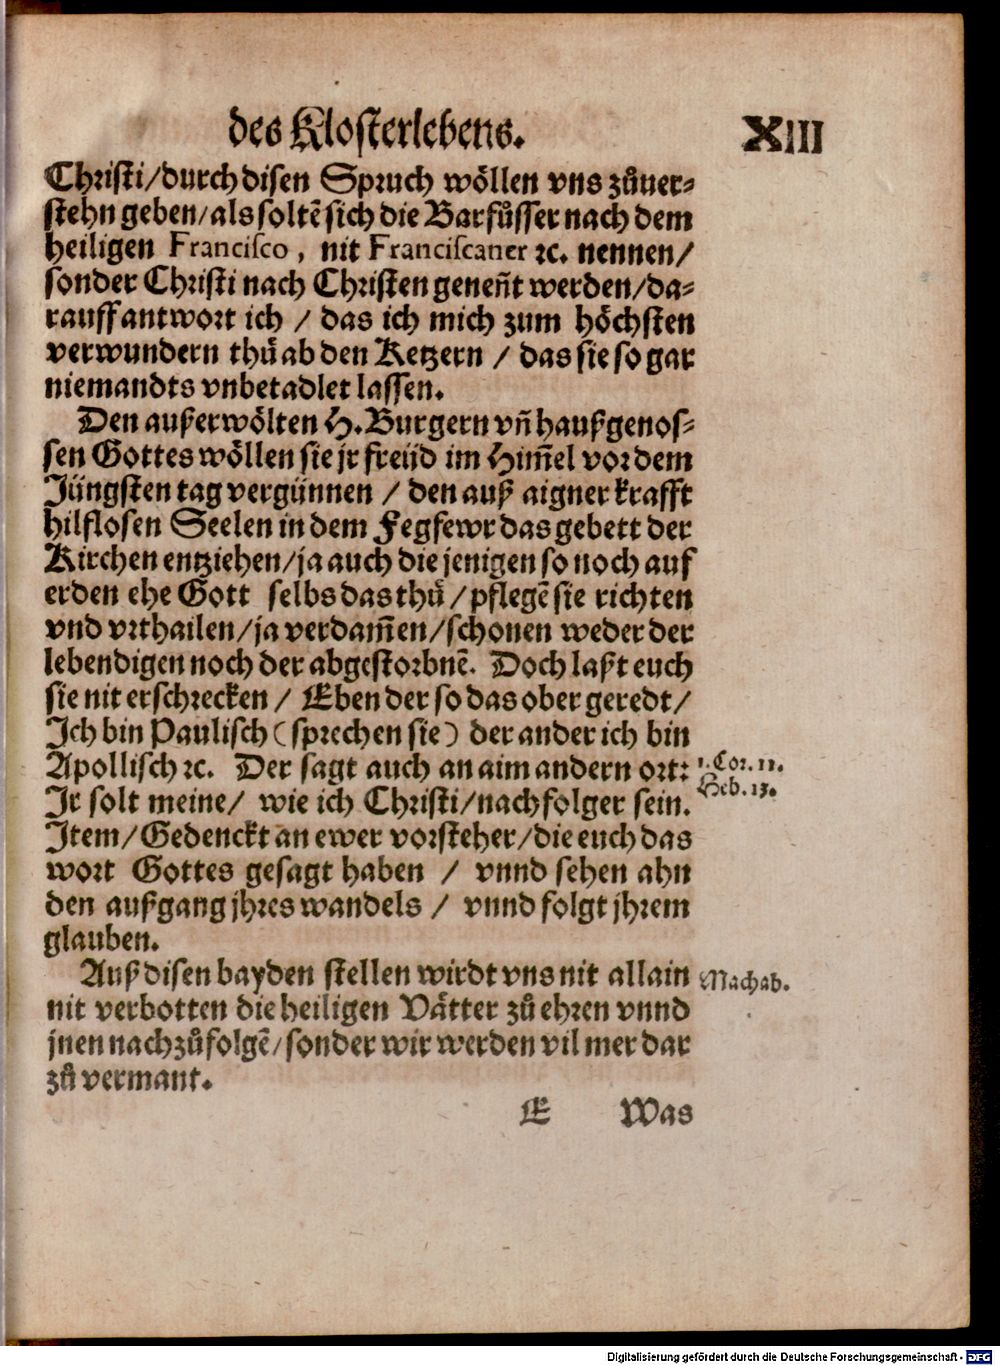 des Klosterlebens. XIII
Christi/durch disen Spruch wöllen vns zůuer-
stehn geben/als soltẽ sich die Barfůsser nach dem
heiligen Francisco, nit Franciscaner ꝛc. nennen/
sonder Christi nach Christen geneñt werden/da-
rauff antwort ich / das ich mich zum höchsten
verwundern thů ab den Ketzern / das sie so gar
niemandts vnbetadlet lassen.
Den außerwölten H. Burgern vñ haußgenos-
sen Gottes wöllen sie jr freüd im Him̃el vor dem
Jüngsten tag vergünnen / den auß aigner krafft
hilflosen Seelen in dem Fegfewr das gebett der
Kirchen entziehen/ja auch die jenigen so noch auf
erden ehe Gott selbs das thů/pflegẽ sie richten
vnd vrthailen/ja verdam̃en/schonen weder der
lebendigen noch der abgestorbnẽ. Doch laßt euch
sie nit erschrecken / Eben der so das ober geredt/
Ich bin Paulisch (sprechen sie) der ander ich bin
Apollisch ꝛc. Der sagt auch an aim andern ort:
1. Cor. 11.
Heb. 13.
Jr solt meine/ wie ich Christi/nachfolger sein.
Item/Gedenckt an ewer vorsteher/die euch das
wort Gottes gesagt haben / vnnd sehen ahn
den außgang jhres wandels / vnnd folgt jhrem
glauben.
Auß disen bayden stellen wirdt vns nit allain
Machab.
nit verbotten die heiligen Vätter zů ehren vnnd
jnen nachzůfolgẽ/sonder wir werden vil mer dar
zů vermant.
E Was
Digitalisierung gefördert durch die Deutsche Forschungsgemeinschaft - DFG